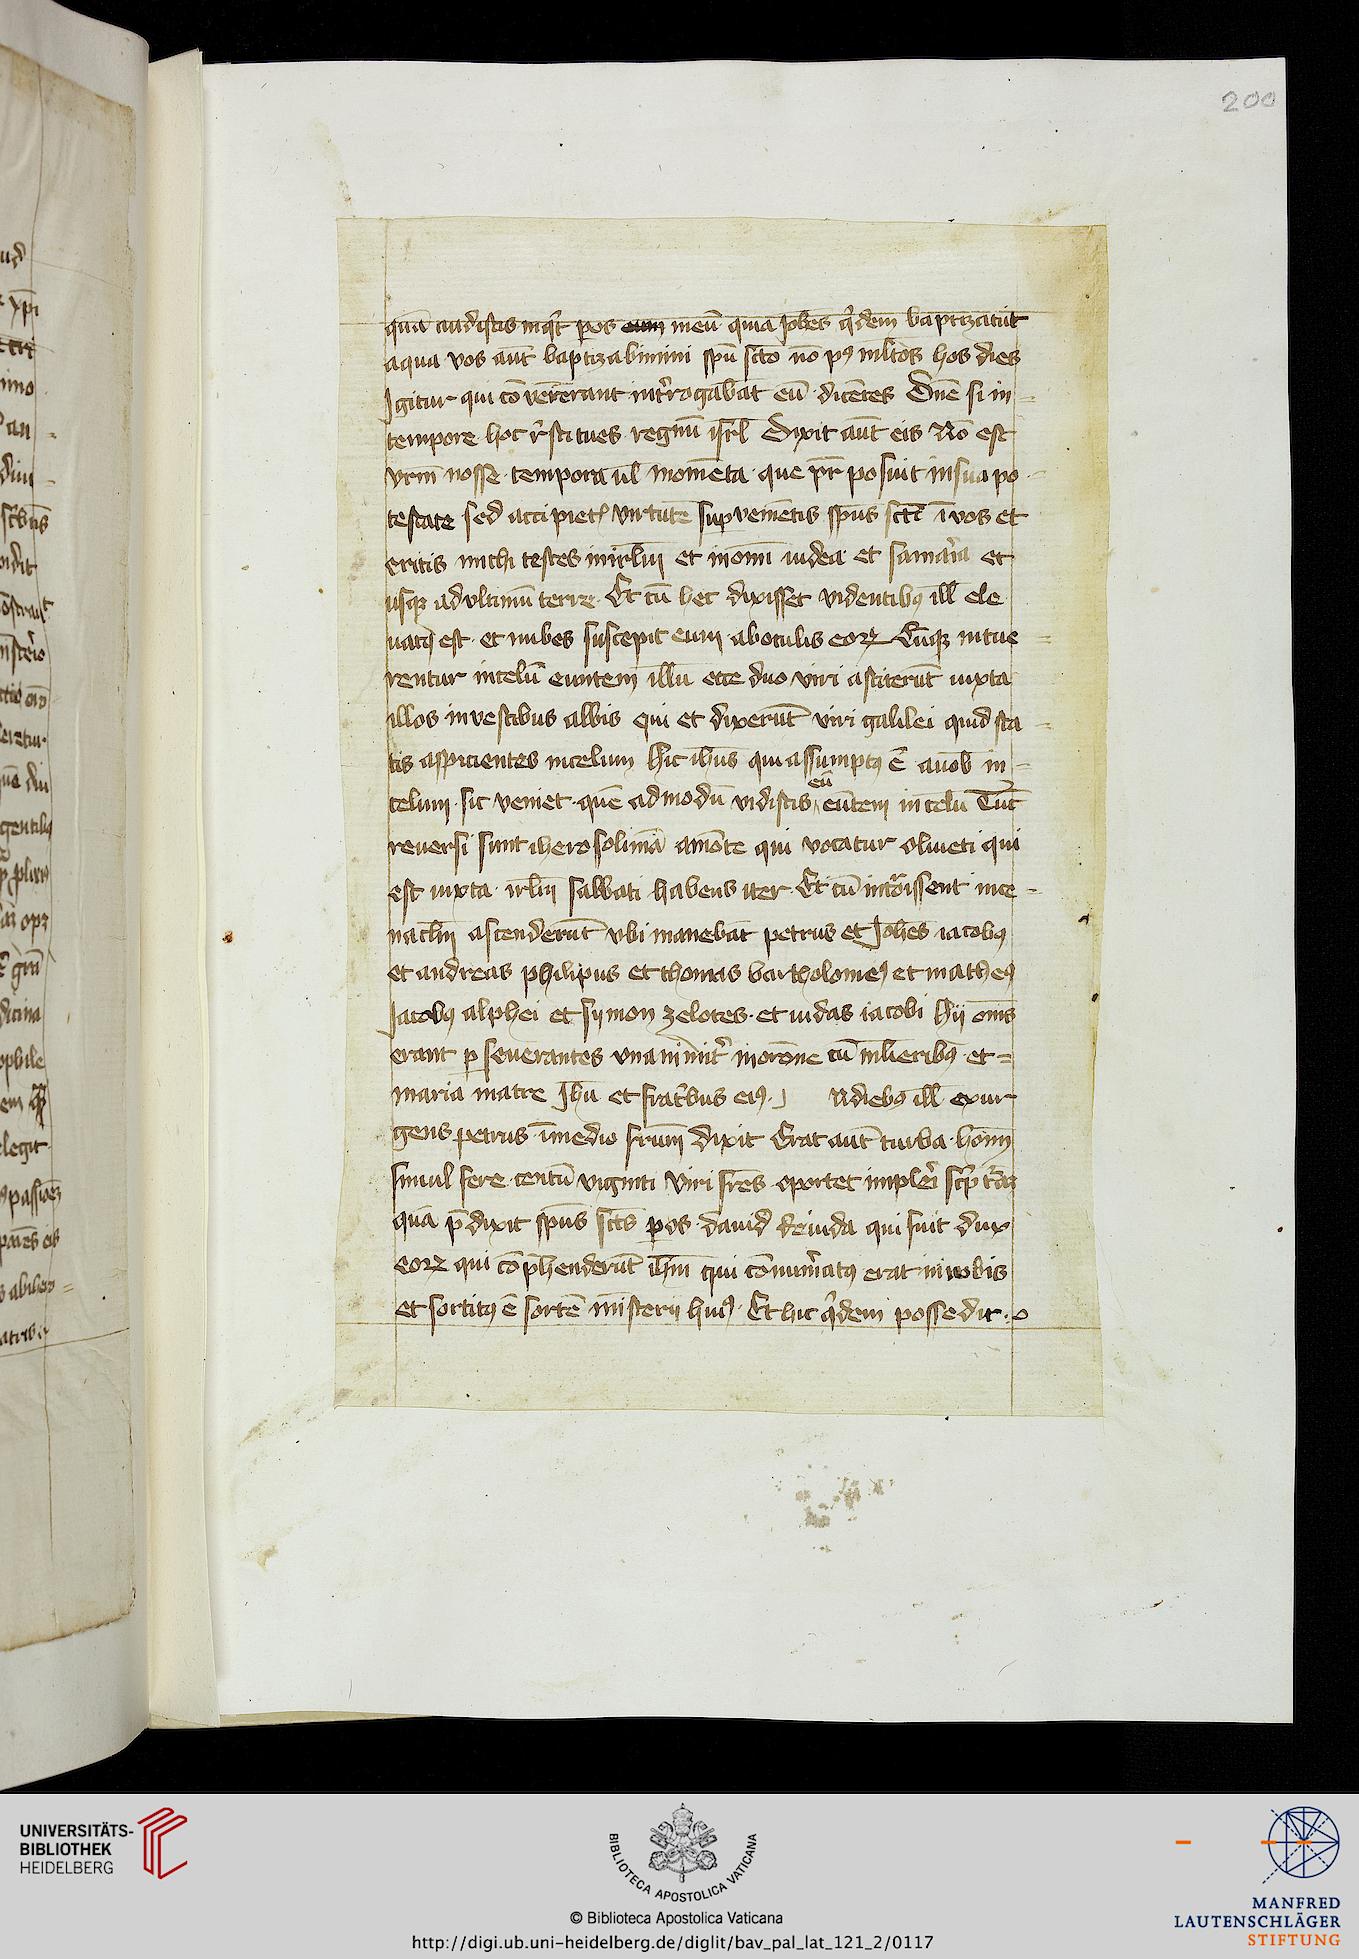 200
quā audistis inqͥt p̱ os meū quia Johēs qͥdem baptizauit
aqua vos aūt baptizabimini spū scō nō pꝰ mltos hos dies
Igitur qui cōvenerant intr̄rogabāt eū dicētes Dn̄e si in
tempore hoc rͥstitues regnū isrl̄ Dixit aūt eis Nō est
vrm̄ nosse tempora ul̄ momēta que pr̄ posuit in sua po
testate sed accipietꝭ virtutē supvenīetis spūs scī ī vos et
eritis michi testes in irl̄m et in omī iudea et samaͥia et
usqꝫ ad vltimū terre Et cū hec dixisset videntibꝰ ill̄ ele
uatꝰ est et nubes suscepit eum ab oculis eoꝝ Cūqꝫ intue
rentur in celū euntem illū ecce duo viri astiterūt iuxta
illos in vestibus albis qui et dixerūt viri galilei quid sta
tis aspicientes in celum Hic ih̄us qui assumptꝰ ē a uob̄ in
celum sic veniet quē admodū vidistis eū eūtem in celū Tūc
reuersi sunt iherosolimā a mōte qui vocatur oliueti qui
est iuxta irl̄m sabbati habens iter Et cū intͦissent in ce
nacl̄m ascenderūt vbi manebāt petrus et Johēs iacobꝰ
et andreas philipus et thomas bartholomeꝰ et matheꝰ
Jacobꝰ alphei et symon zelotes et iudas iacobi Hij om̄s
erant p̱seuerantes vnanimit̓ in orōne cū ml̄ieribꝰ et
maria matre Jhū et fratͥbus eiꝰ J N diebꝰ ill̄ exur
gens petrus ī medio frm̄ dixit Erat aūt turba hoīm
simul fere centū viginti Viri frēs oportet impleͥi
quā p̄dixit spūs scs̄ p̱ os dauid de iuda qui fuit dux
eoꝝ qui cōp̄henderūt ih̄m qui cōnumͥatꝰ erat in nobis
et sortitꝰ ē sortē mīsterij huiꝰ Et hic qͥdem possedit
UNIVERSITÄTS-
BIBLIOTHEK
HEIDELBERG
BIBLIOTECA APOSTOLICA VATICANA
© Biblioteca Apostolica Vaticana
http://digi.ub.uni-heidelberg.de/diglit/bav_pal_lat_121_2/0117
MANFRED
LAUTENSCHLÄGER
STIFTUNG